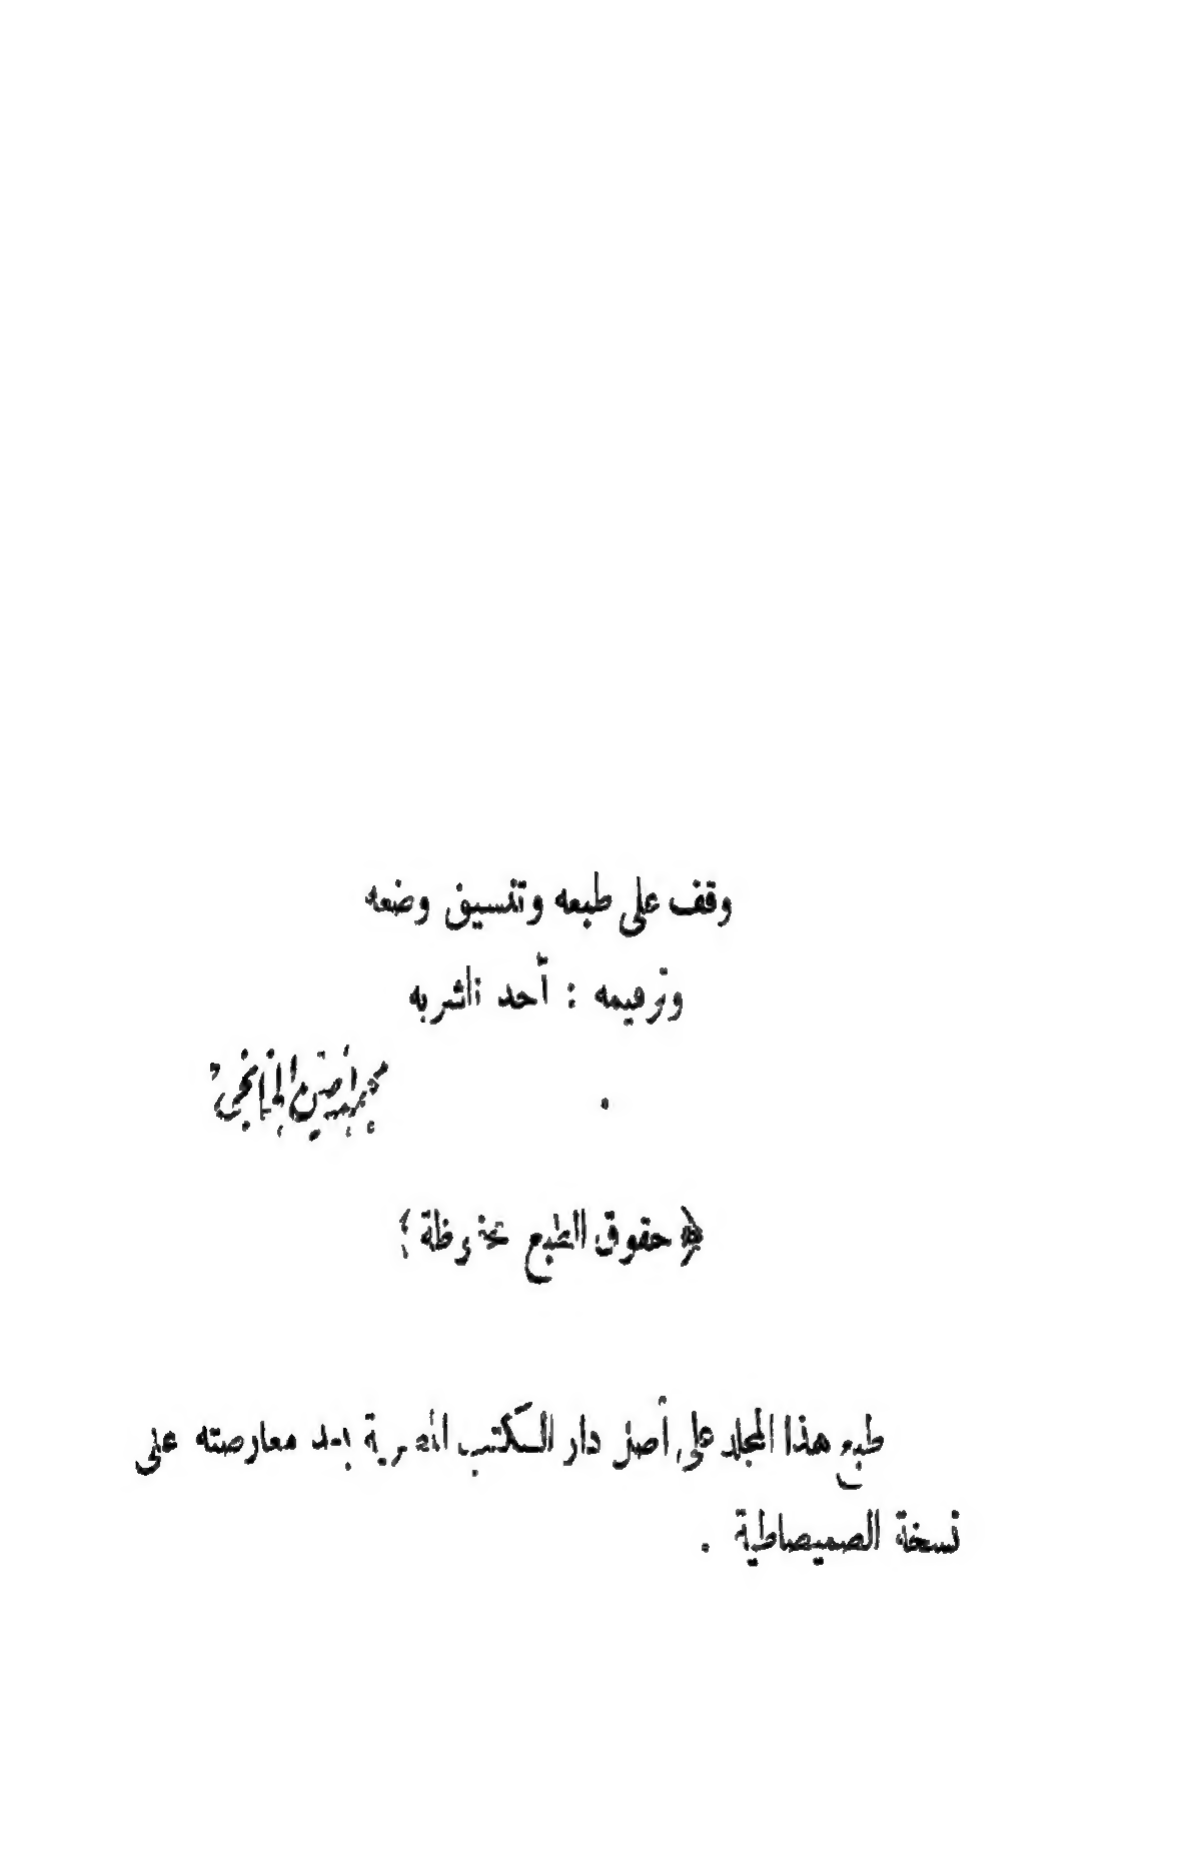 وقف على طبعه وتنسيق وضعه
وترقيمه : أحد ناشريه
محمد أمين الخانجي
﴿ حقوق الطبع محفوظة ﴾
طبع هذا المجلد على أصل دار الكتب المصرية بعد معارضته على
نسخة الصميصاطية .